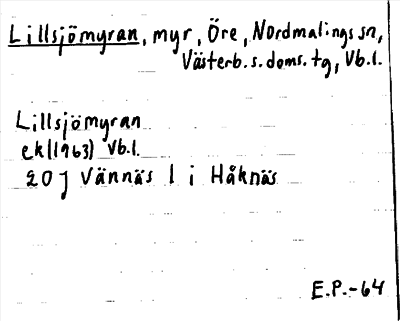 Lillsjömyran, myr, Öre, Nordmalings sn,
Västerb. s. doms. tg, Vb.l.
Lillsjömyran
ek (1963) Vb.l.
20 J Vännäs l i Håknäs
E.P.-64